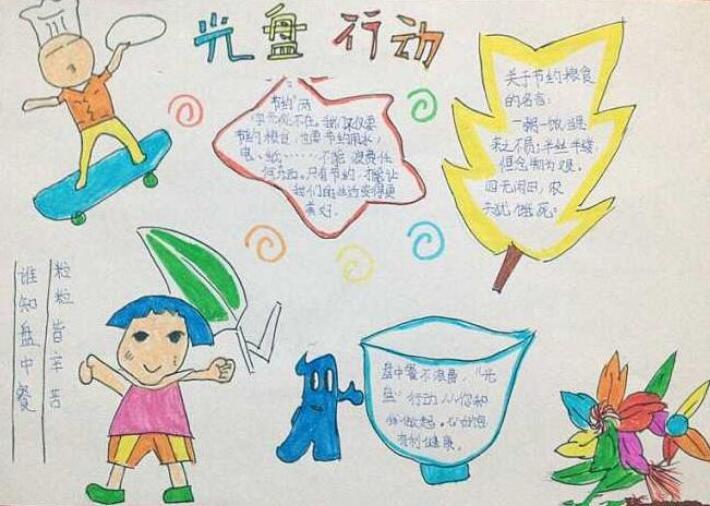 光盘行动
"节约"两
字无处不在。我们不仅要
节约粮食,也要节约用水,
电、纸……不能浪费任
何东西。只有节约,才能让
我们的生活变得更
美好。
关于节约粮食
的名言:
一粥一饭,当思
来之不易;半丝半缕
念艰。
四无闲田,农
夫犹饿死。
谁知盘中餐
粒粒皆辛苦
盘中餐不浪费,"光
盘"行动从你和
我做起。饱
有利健康。